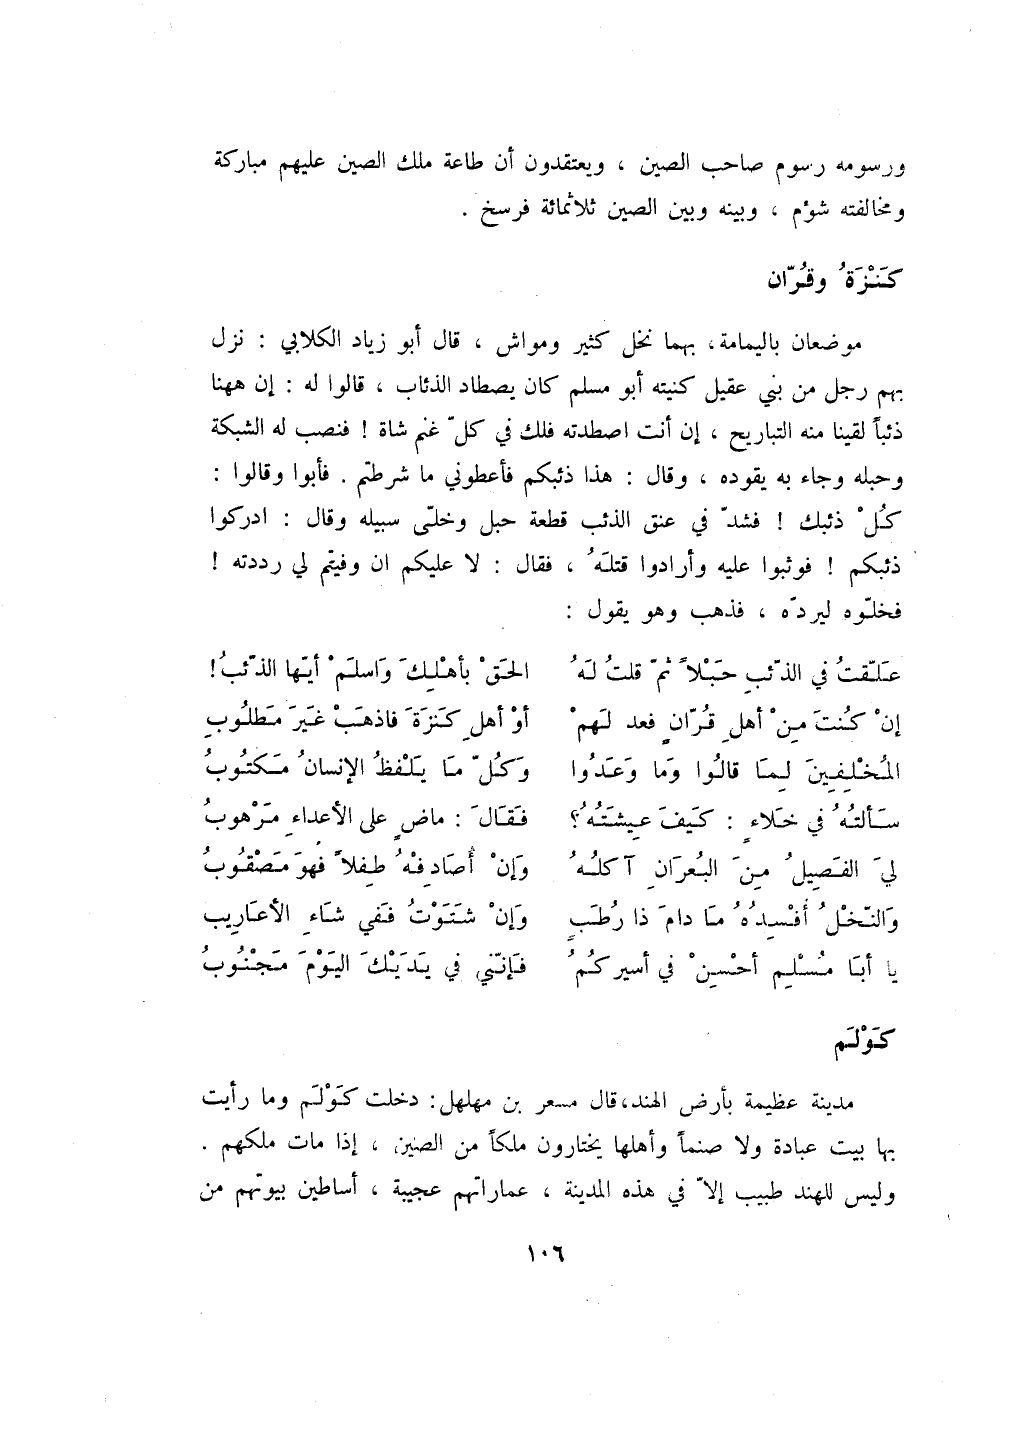 ورسومه رسوم صاحب الصين ، ويعتقدون أن طاعة ملك الصين عليهم مباركة
ومخالفته شؤم ، وبينه وبين الصين ثلاثمائة فرسخ .
كَنْزَةُ وقُرّان
موضعان باليمامة، بهما نخل كثير ومواش ، قال أبو زياد الكلابي : نزل
بهم رجل من بني عقيل كنيته أبو مسلم كان يصطاد الذئاب ، قالوا له : إن ههنا
ذئباً لقينا منه التباريح ، إن أنت اصطدته فلك في كلّ غنم شاة ! فنصب له الشبكة
وحبله وجاء به يقوده ، وقال : هذا ذئبكم فأعطوني ما شرطتم . فأبوا وقالوا :
كُلْ ذئبك ! فشدّ في عنق الذئب قطعة حبل وخلّى سبيله وقال : ادركوا
ذئبكم ! فوثبوا عليه وأرادوا قتلَهُ ، فقال : لا عليكم ان وفيتم لي رددته !
فخلّوه ليردّه ، فذهب وهو يقول :
عَلّقتُ في الذّئبِ حَبْلاً ثمّ قلتُ لَهُ الحَقْ بأهْلِكَ وَاسلَمْ أيّها الذّئبُ!
إنْ كُنتَ مِنْ أهلِ قُرّانٍ فعد لَهمْ أوْ أهلِ كَنزَةَ فاذهَبْ غَيَر مَطلُوبِ
المُخْلِفِينَ لِمَا قالُوا وَما وَعَدُوا وَكُلّ مَا يَلْفظُ الإنسانُ مَكتُوبُ
سَألتُهُ في خَلاءٍ : كَيفَ عِيشَتُهُ؟ فقَالَ : ماضٍ على الأعداءِ مَرْهوبُ
ليَ الفَصِيلُ مِنَ البُعرَانِ آكلُهُ وَإنْ أُصَادِفْهُ طفلاً فهوَ مَصْقُوبُ
وَالنّخْلُ أُفْسِدُهُ مَا دامَ ذا رُطَبٍ وَإنْ شَتَوْتُ ففي شَاءِ الأعَاريب
يا أبَا مُسْلِمٍ أحْسِنْ في أسيركُمُ فَإنّني في يَدَيْكَ اليَوْمَ مَجْنُوبُ
كَوْلَم
مدينة عظيمة بأرض الهند،قال مسعر بن مهلهل: دخلت كَوْلَم وما رأيت
بها بيت عبادة ولا صنماً وأهلها يختارون ملكاً من الصين ، إذا مات ملكهم .
وليس للهند طبيب إلاّ في هذه المدينة ، عماراتهم عجيبة ، أساطين بيوتهم من
١٠٦